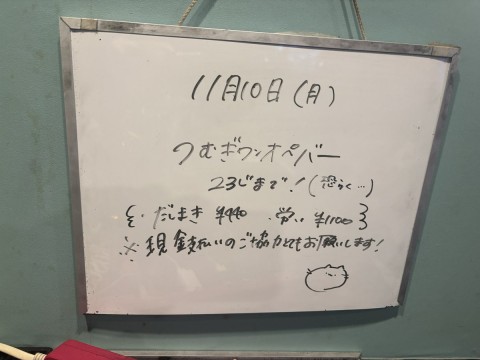 11月10日(月)
つむぎワンオペバー
23じまで!(恐らく…)
{・だしまき ¥440 ・労い ¥1100}
※現金支払いのご協力とてもお願いします!